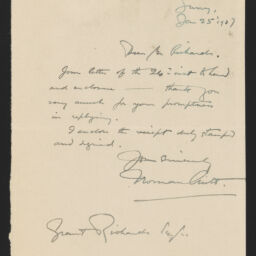 Jan 25 1907
Dear Mr Richards.
Your letter of the 24th inst to hand
and enclosure — thank you
very much for your promptness
in replying.
I enclose the receipt duly stamped
and signed.
Yours Sincerely
Norman
Grant Richards Esq.